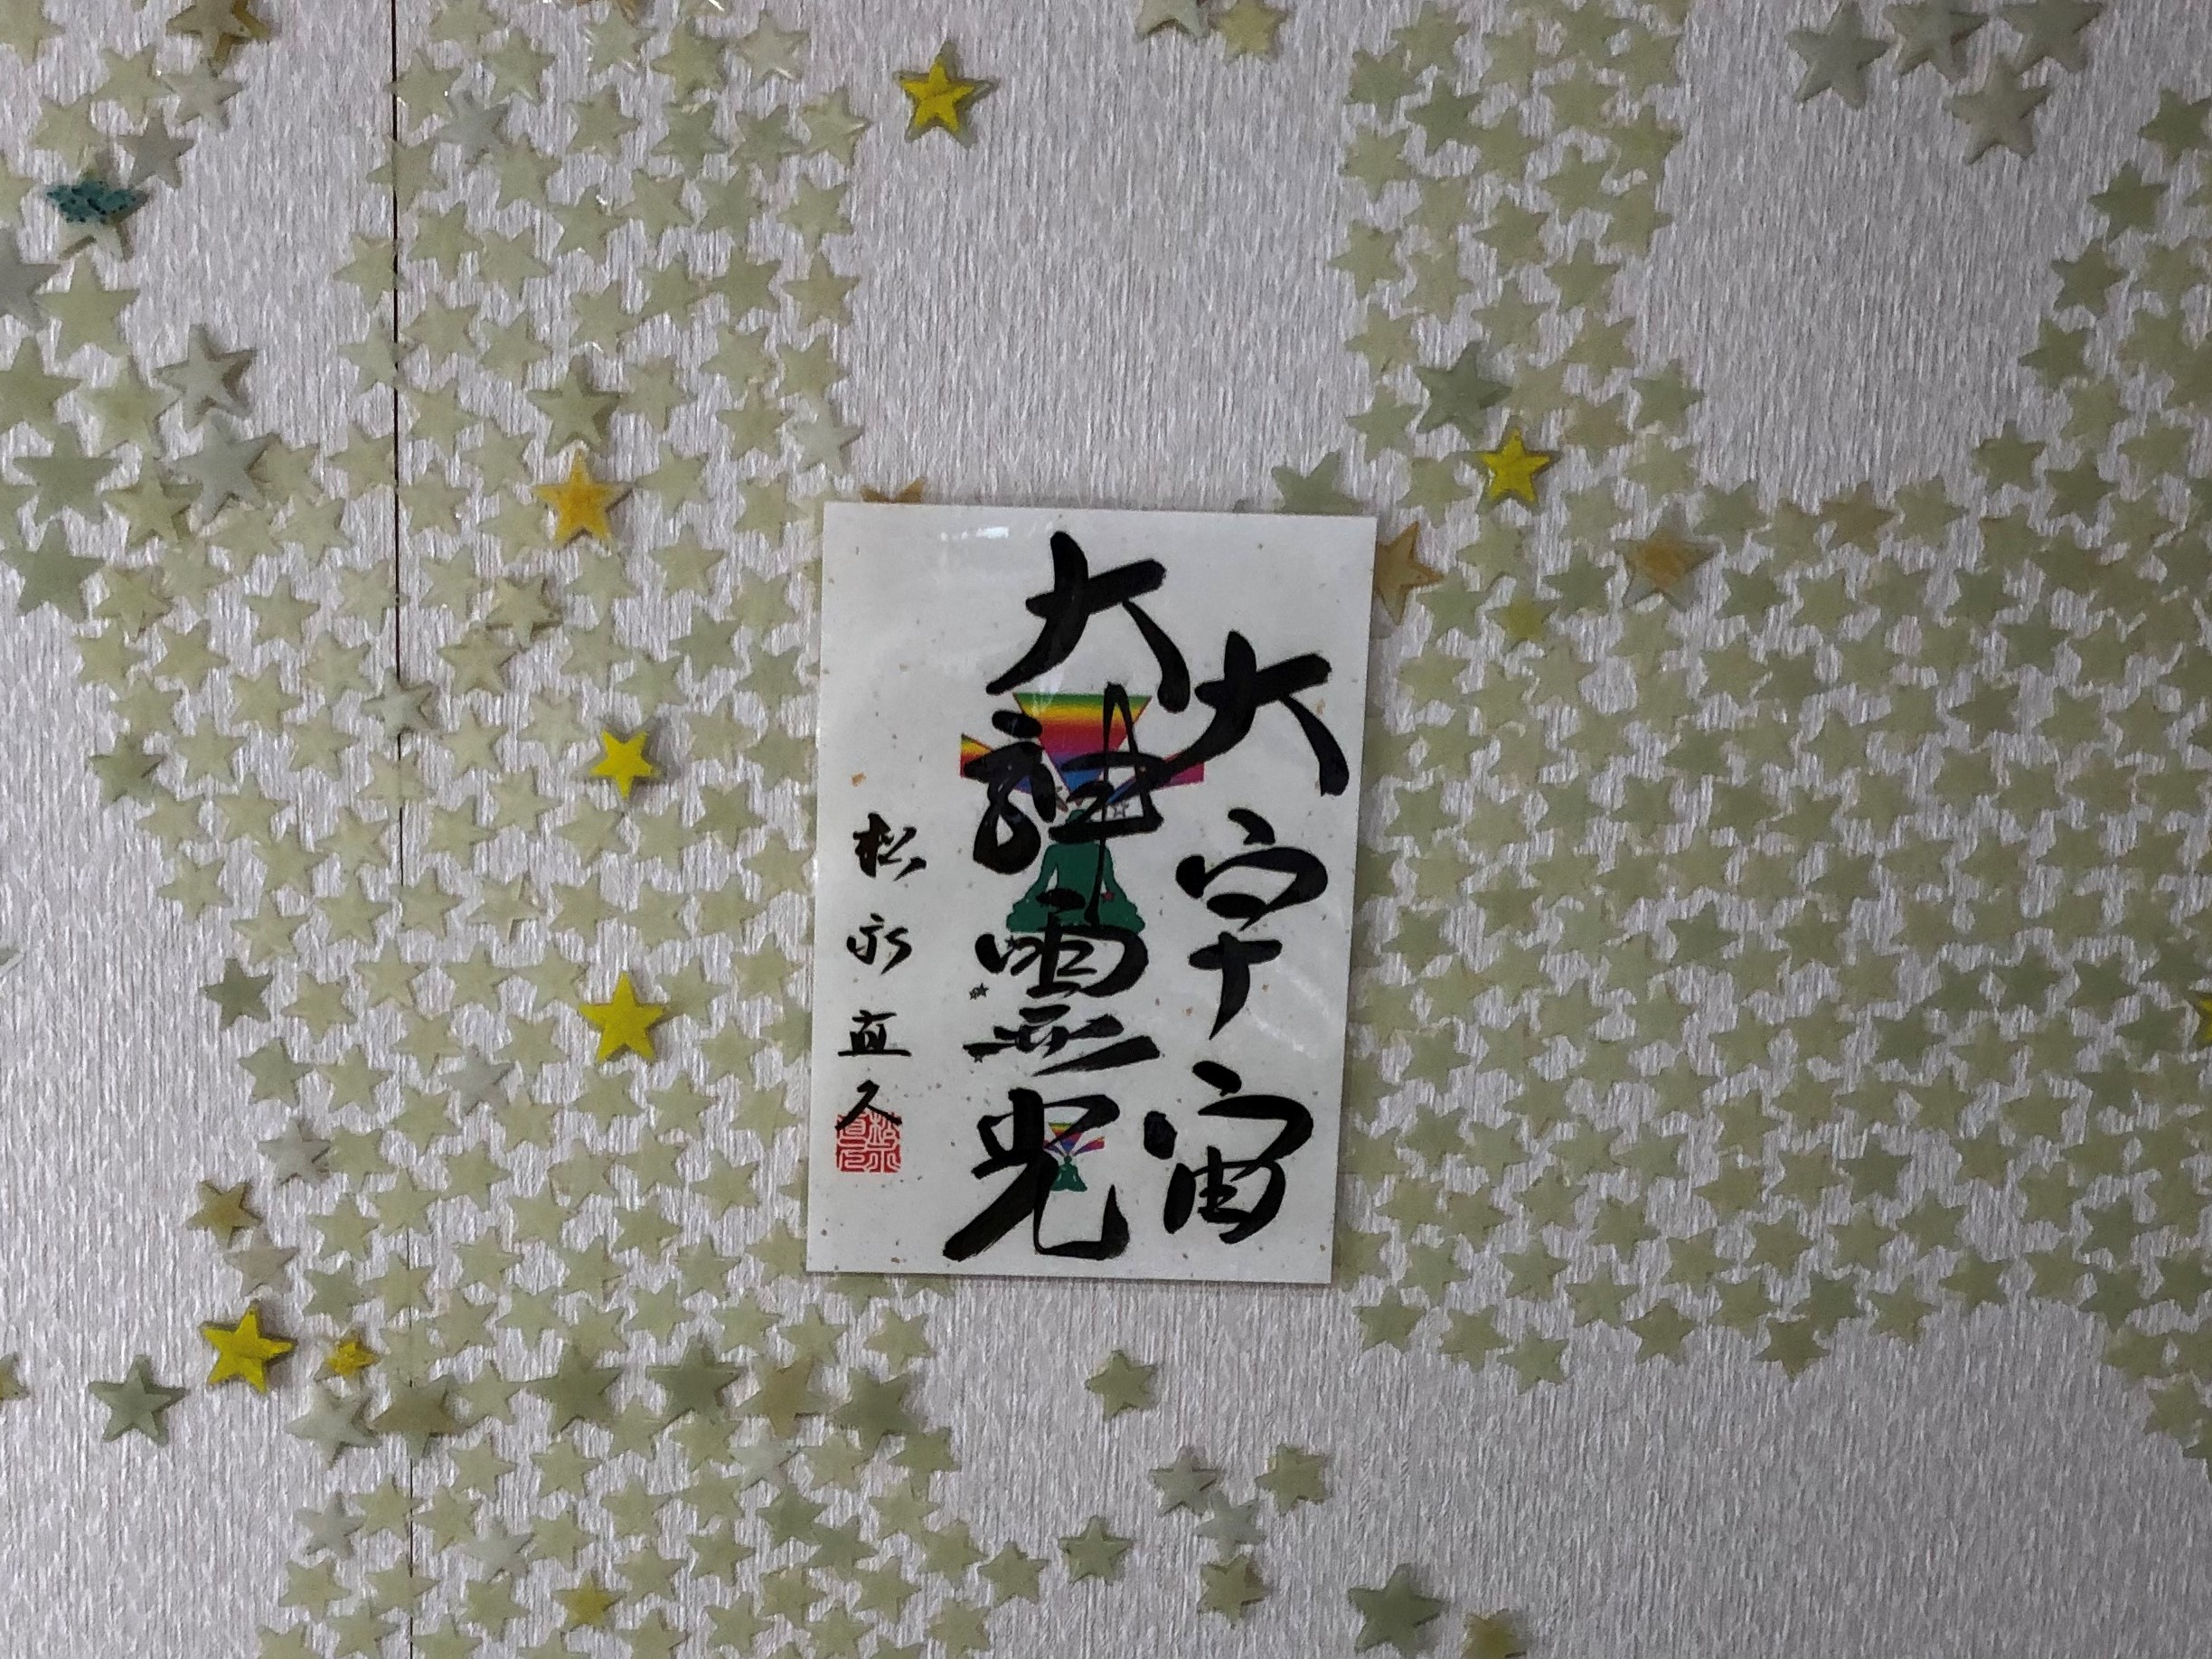 大宇宙
大神霊光
松永直久